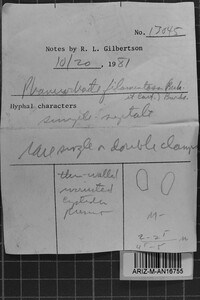 No. 13045
Notes by R. L. Gilbertson
10/20, 1981
Phanerochaete filamentosa (Berk.
et Curt.) Burds.
Hyphal characters
simple septate
rare single or double clamps
thin-walled
cystidia
present
M-
ARIZ-M-AN16755